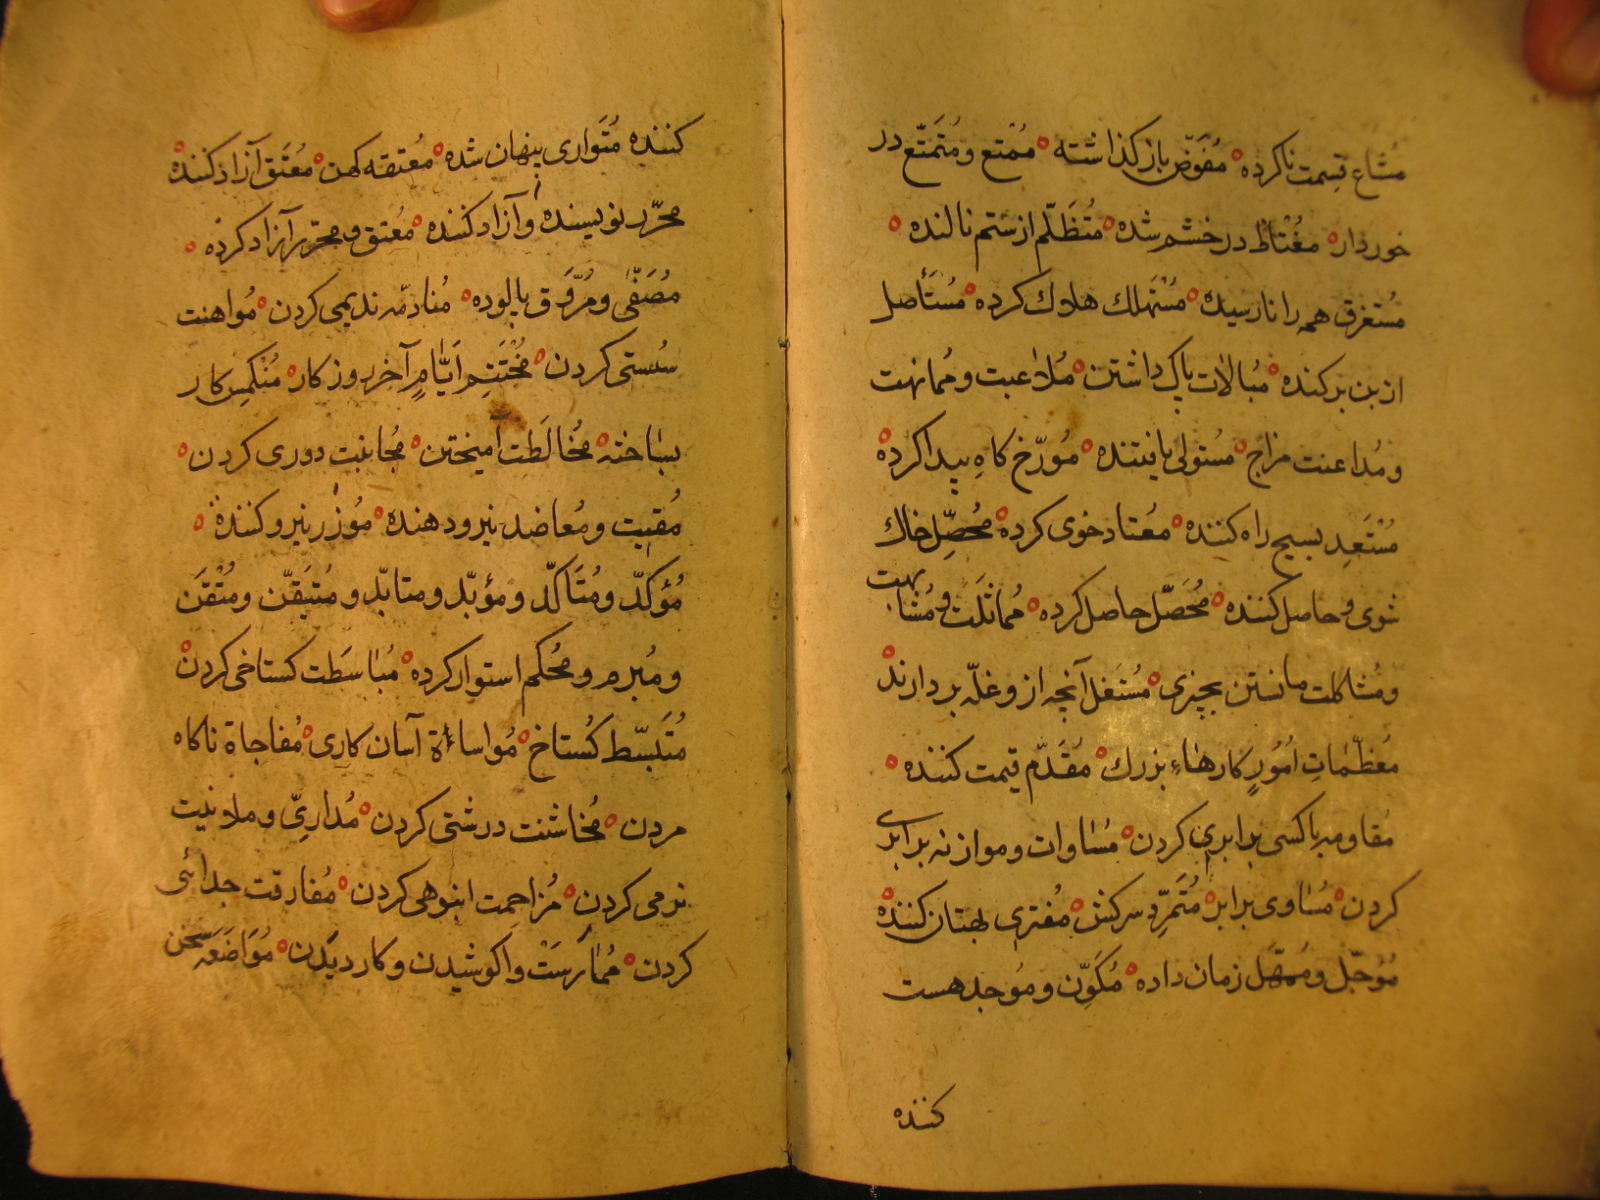 مُشَاع قسمت ناكرده مُفَوَّض بازكذاشته مُمْتع ومُتَمَتّع در
خوردار مغْتاظ در خشم شده مُتَظَلّم از ستم نالنده
مُستغرق همه را نارسيده مُسْتَهلك هلاك كرده مُستَأصل
از بن بركنده مُبالات باك داشتن مُلاعبت ومُمانهت
ومُداعنت مزاح مُستولى يافتنده مُورّخ كاهِ پيدا كرده
مُسْتَعِد بسيج راه كننده مُعتاد خوى كرده مُحصِّل خاك
شوى وحاصل كننده مُحَصَّل حاصل كرده مُماثَلَت ومُشابهت
ومُشاكلت مانستن بچيزى مُستغل آنچه ازو غلّه بردارند
مُعَظَّمَاتِ اُمُورٍ كارهاءِ بزرك مُقَدّم قيمت كننده
مُقاومه باكسى برابرى كردن مُسَاوات وموازنه برابرى
كردن مُسَاوى برابر مُتَمَرِّد سركش مُفترى بهتان كننده
مُوَجّل ومُمهَل زمان داده مُكَوِّن ومُوجد هست
كننده
كننده مُتَوارى پنهان شده مُعتقه كهن مُعْتَق آزاد كننده
محرّر نويسنده وآزاد كننده مُعتق ومحرّر آزاد كرده
مُصَفّٰى ومُرَوَّق پالوده مُنادمّه نديمى كردن مُواهنت
سُستى كردن مُخْتَتِم اَيّامٍ آخر روزكار مُنْكمِس كار
بساخته مُخالَطَت آميختن مُجانبت دورى كردن
مُقيت ومُعاضد نيرو دهنده مُوْزر نيرو كننده
مُؤكدّ ومُتَاكدّ ومؤبّد ومتابّد ومُتيَقّن ومُتْقَن
ومُبرم ومُحكَم استوار كرده مُباسَطَت كستاخى كردن
مُتَبسّط كُستاخ مُواساءة آسان كارى مُفاجاة ناكاه
مردن مُخاشنت درشتى كردن مُدارىّ وملانيت
نرمى كردن مُزاحمت انبوهى كردن مُفارقت جدائى
كردن مُمَارَسَتْ واكوشيدن وكار ديدن مُوَاضَعَه سخن